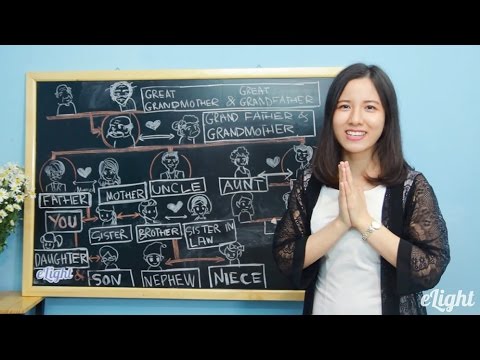 GREAT GREAT
GRANDMOTHER & GRANDFATHER
GRAND FATHER &
GRANDMOTHER
FATHER MOTHER UNCLE AUNT
YOU SISTER BROTHER SISTER IN
LAW
DAUGHTER SON NEPHEW NIECE
eLight
eLight